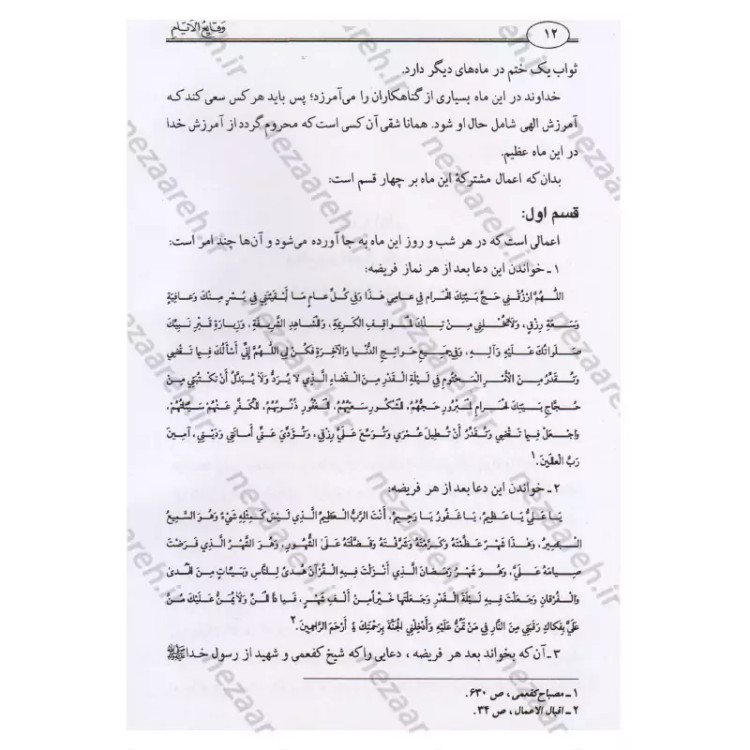 ۱۲
وقایع الایّام
ثواب یک ختم در ماه‌های دیگر دارد.
خداوند در این ماه بسیاری از گناهکاران را می‌آمرزد؛ پس باید هر کس سعی کند که
آمرزش الهی شامل حال او شود. همانا شقی آن کسی است که محروم گردد از آمرزش خدا
در این ماه عظیم.
بدان که اعمال مشترکهٔ این ماه بر چهار قسم است:
قسم اول:
اعمالی است که در هر شب و روز این ماه به جا آورده می‌شود و آن‌ها چند امر است:
۱ ـ خواندن این دعا بعد از هر نماز فریضه:
اللّهُمَّ ارْزُقْنِي حَجَّ بَيْتِكَ الْحَرامِ فِي عامِي هٰذا وَفِي كُلِّ عامٍ ما أَبْقَيْتَنِي فِي يُسْرٍ مِنْكَ وَعافِيَةٍ
وَسَعَةِ رِزْقٍ، وَلا تُخْلِنِي مِنْ تِلْكَ الْمَواقِفِ الْكَرِيمَةِ، وَالْمَشاهِدِ الشَّرِيفَةِ، وَزِيارَةِ قَبْرِ نَبِيِّكَ
صَلَواتُكَ عَلَيْهِ وَآلِهِ، وَفِي جَمِيعِ حَوائِجِ الدُّنْيا وَالْآخِرَةِ فَكُنْ لِي اللّهُمَّ إِنِّي أَسْأَلُكَ فِيما تَقْضِي
وَتُقَدِّرُ مِنَ الْأَمْرِ الْمَحْتُومِ فِي لَيْلَةِ الْقَدْرِ مِنَ الْقَضاءِ الَّذِي لا يُرَدُّ وَلا يُبَدَّلُ أَنْ تَكْتُبَنِي مِنْ
حُجَّاجِ بَيْتِكَ الْحَرامِ الْمَبْرُورِ حَجُّهُمْ، الْمَشْكُورِ سَعْيُهُمْ، الْمَغْفُورِ ذُنُوبُهُمْ، الْمُكَفَّرِ عَنْهُمْ سَيِّئاتُهُمْ،
وَاجْعَلْ فِيما تَقْضِي وَتُقَدِّرُ أَنْ تُطِيلَ عُمْرِي وَتُوَسِّعَ عَلَيَّ رِزْقِي، وَتُؤَدِّيَ عَنِّي أَمانَتِي وَدَيْنِي، آمِينَ
رَبَّ الْعالَمِينَ.۱
۲ ـ خواندن این دعا بعد از هر فریضه:
يا عَلِيُّ يا عَظِيمُ، يا غَفُورُ يا رَحِيمُ، أَنْتَ الرَّبُّ الْعَظِيمُ الَّذِي لَيْسَ كَمِثْلِهِ شَيْءٌ وَهُوَ السَّمِيعُ
الْبَصِيرُ، وَهٰذا شَهْرٌ عَظَّمْتَهُ وَكَرَّمْتَهُ وَشَرَّفْتَهُ وَفَضَّلْتَهُ عَلَى الشُّهُورِ، وَهُوَ الشَّهْرُ الَّذِي فَرَضْتَ
صِيامَهُ عَلَيَّ، وَهُوَ شَهْرُ رَمَضانَ الَّذِي أَنْزَلْتَ فِيهِ الْقُرْآنَ هُدىً لِلنَّاسِ وَبَيِّناتٍ مِنَ الْهُدىٰ
وَالْفُرْقانِ وَجَعَلْتَ فِيهِ لَيْلَةَ الْقَدْرِ وَجَعَلْتَها خَيْراً مِنْ أَلْفِ شَهْرٍ، فَيا ذَا الْمَنِّ وَلا يُمَنُّ عَلَيْكَ مُنَّ
عَلَيَّ بِفَكاكِ رَقَبَتِي مِنَ النَّارِ فِي مَنْ تَمُنُّ عَلَيْهِ وَأَدْخِلْنِي الْجَنَّةَ بِرَحْمَتِكَ يا أَرْحَمَ الرَّاحِمِينَ.۲
۳ ـ آن که بخواند بعد هر فریضه، دعایی را که شیخ کفعمی و شهید از رسول خدا ﷺ
۱ ـ مصباح کفعمی، ص ۶۳۰.
۲ ـ اقبال الاعمال، ص ۳۴.
nezaareh.ir